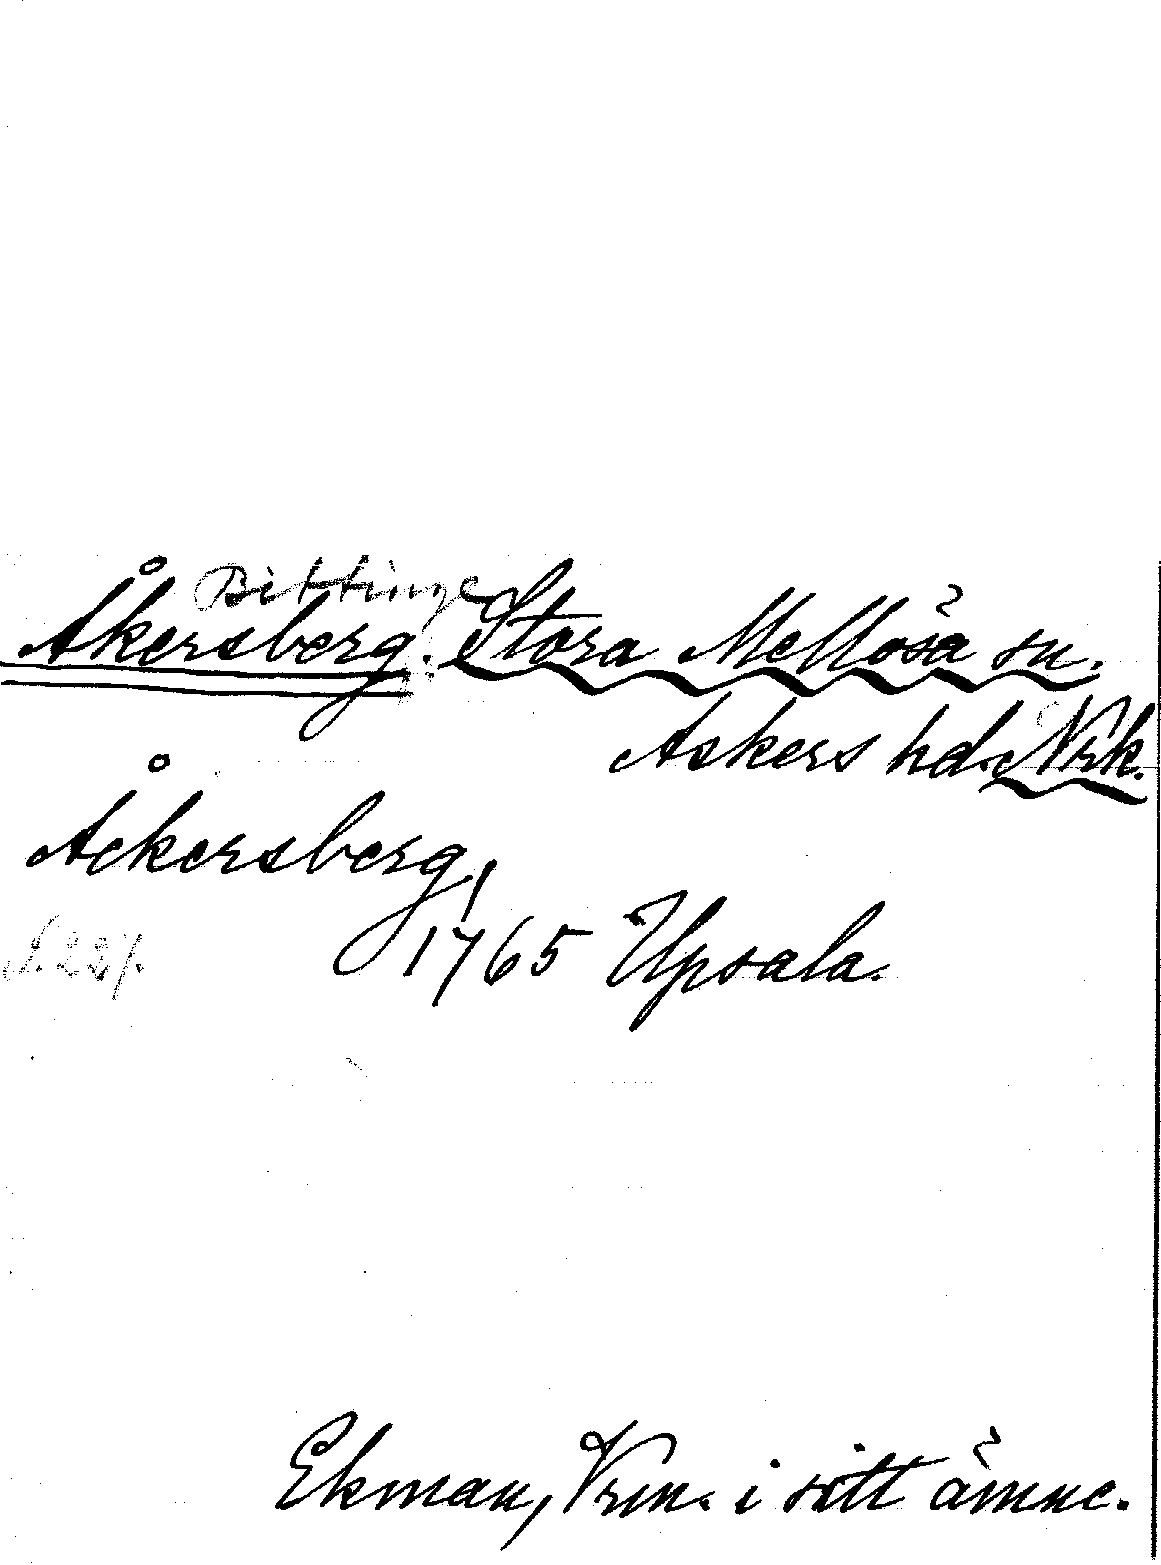 Bittinge
Åkersberg. Stora Mellösa sn.
Askers hd. Nrk.
Åckersberg,
1765 Upsala.
S. 227.
Ekman, Vrm. i sitt ämne.